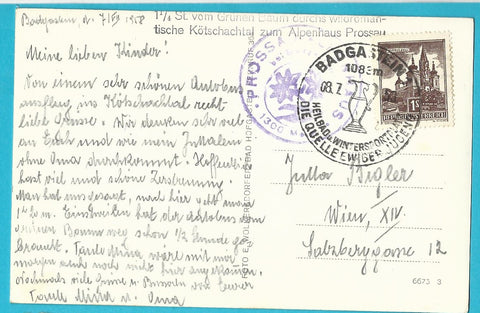 Badgastein, d. 7/VII 1958
1½ St. vom Grünen Baum durchs wildroman-
tische Kötschachtal zum Alpenhaus Prossau
Meine lieben Kinder!
Von einem sehr schönen Autobus
ausflug ins Kötschachtal recht
liebe Grüsse. Wir denken sehr viel
an Euch und wie mein Juttalein
ohne Oma durchkommt. Hoffentlich
hast viel und schöne Zerstreuung.
Man hat uns gesagt, nach hier geht man
1 ½ Einstweilen hat der Autobus vom
grünen Baum weg schon ½ Stunde ge-
braucht. Tante Mina wäre mit mir
morgen auch noch nicht hier angekommen.
Nochmals viele Grüsse u. Bussi von Eurer
Tante Mina u. Oma
PROSSAU
1300 M
BADGASTEIN
1083m
08.7.
HEILBAD & WINTERSPORTPLATZ
DIE QUELLE EWIGER JUGEND
1S
REPUBLIK ÖSTERREICH
Jutta Bigler
Wien, XIV.
Salzberggasse 12
6673 3